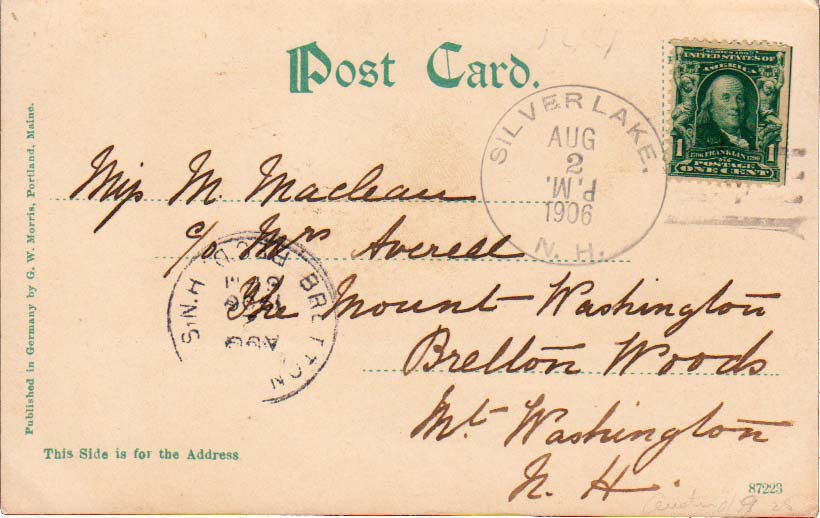 Post Card.
SERIES 1902
UNITED STATES OF
AMERICA
1 1
1706 FRANKLIN 1790
POSTAGE
ONE CENT
SILVER LAKE,
AUG
2
P.M.
1906
N. H.
Miss M Maclean
c/o Mrs Averell
The Mount Washington
Bretton Woods
Mt Washington
N. H.
BRETTON
N.H.
AUG
REC'D
Published in Germany by G. W. Morris, Portland, Maine.
This Side is for the Address
87223